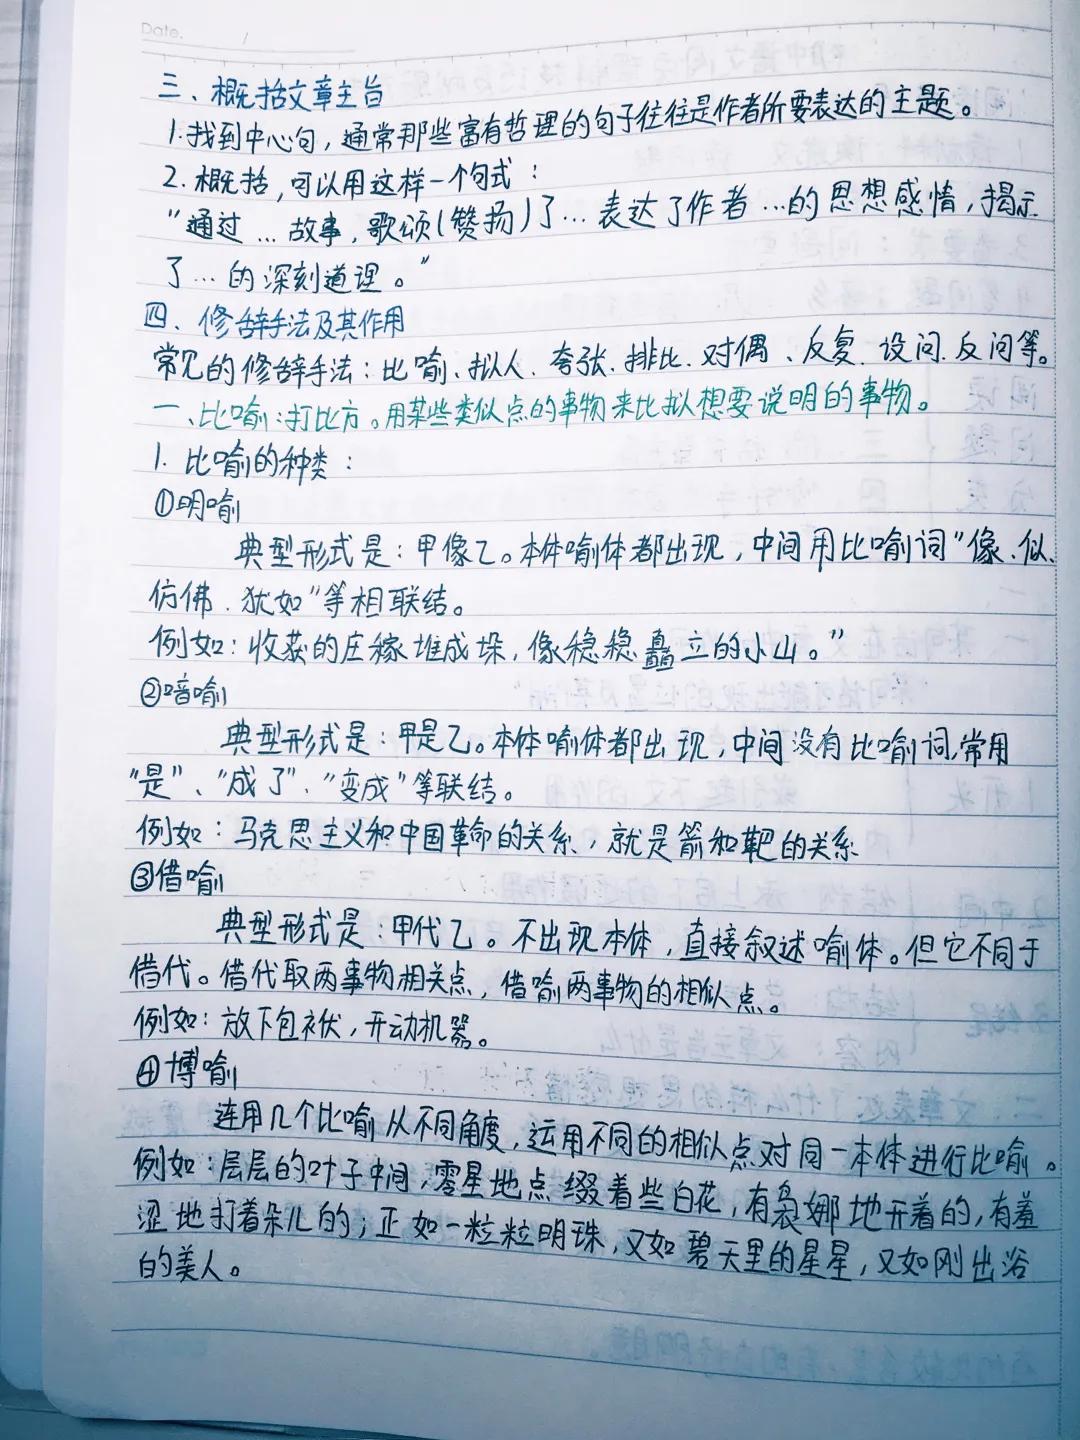 Date. /
三、概括文章主旨
1.找到中心句，通常那些富有哲理的句子往往是作者所要表达的主题。
2.概括，可以用这样一个句式：
“通过…故事，歌颂(赞扬)了…表达了作者…的思想感情，揭示
了…的深刻道理。”
四、修辞手法及其作用
常见的修辞手法：比喻、拟人、夸张、排比、对偶、反复、设问、反问等。
一、比喻：打比方。用某些类似点的事物来比拟想要说明的事物。
1.比喻的种类：
①明喻
典型形式是：甲像乙。本体喻体都出现，中间用比喻词“像、似、
仿佛、犹如”等相联结。
例如：收获的庄稼堆成垛，像稳稳矗立的小山。”
②暗喻
典型形式是：甲是乙。本体喻体都出现，中间没有比喻词，常用
“是”、“成了”、“变成”等联结。
例如：马克思主义和中国革命的关系，就是箭和靶的关系
③借喻
典型形式是：甲代乙。不出现本体，直接叙述喻体。但它不同于
借代。借代取两事物相关点，借喻两事物的相似点。
例如：放下包袱，开动机器。
④博喻
连用几个比喻从不同角度，运用不同的相似点对同一本体进行比喻。
例如：层层的叶子中间，零星地点缀着些白花，有袅娜地开着的，有羞
涩地打着朵儿的；正如一粒粒明珠，又如碧天里的星星，又如刚出浴
的美人。